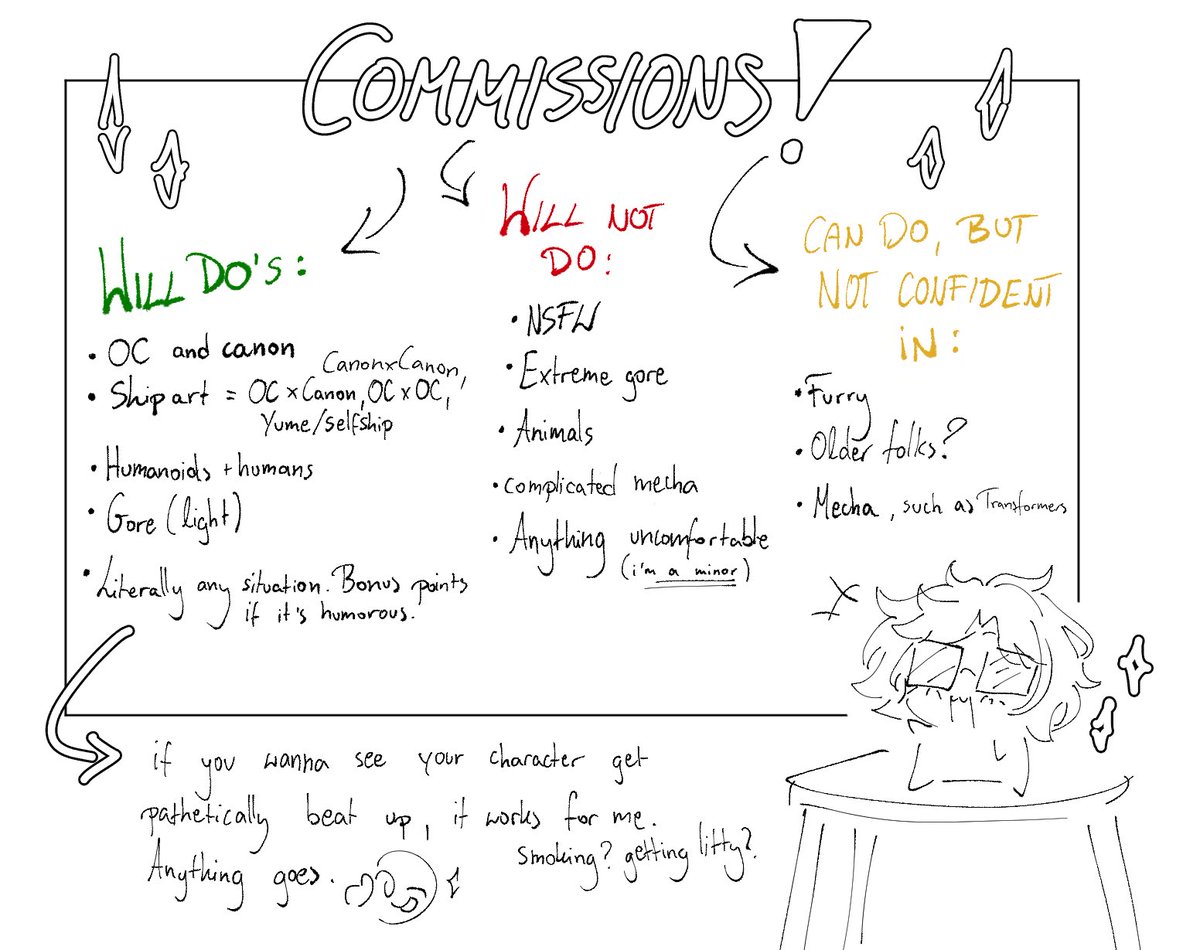 COMMISSIONS!
WILL DO'S:
• OC and canon
• Ship art = OC x Canon, OC x OC,
CanonxCanon,
Yume/selfship
• Humanoids + humans
• Gore (light)
• Literally any situation. Bonus points
if it's humorous.
WILL NOT
DO:
• NSFW
• Extreme gore
• Animals
• complicated mecha
• Anything uncomfortable
(i'm a minor)
CAN DO, BUT
NOT CONFIDENT
iN:
• Furry
• Older folks?
• Mecha, such as Transformers
if you wanna see your character get
pathetically beat up, it works for me.
Anything goes.
smoking? getting litty?.